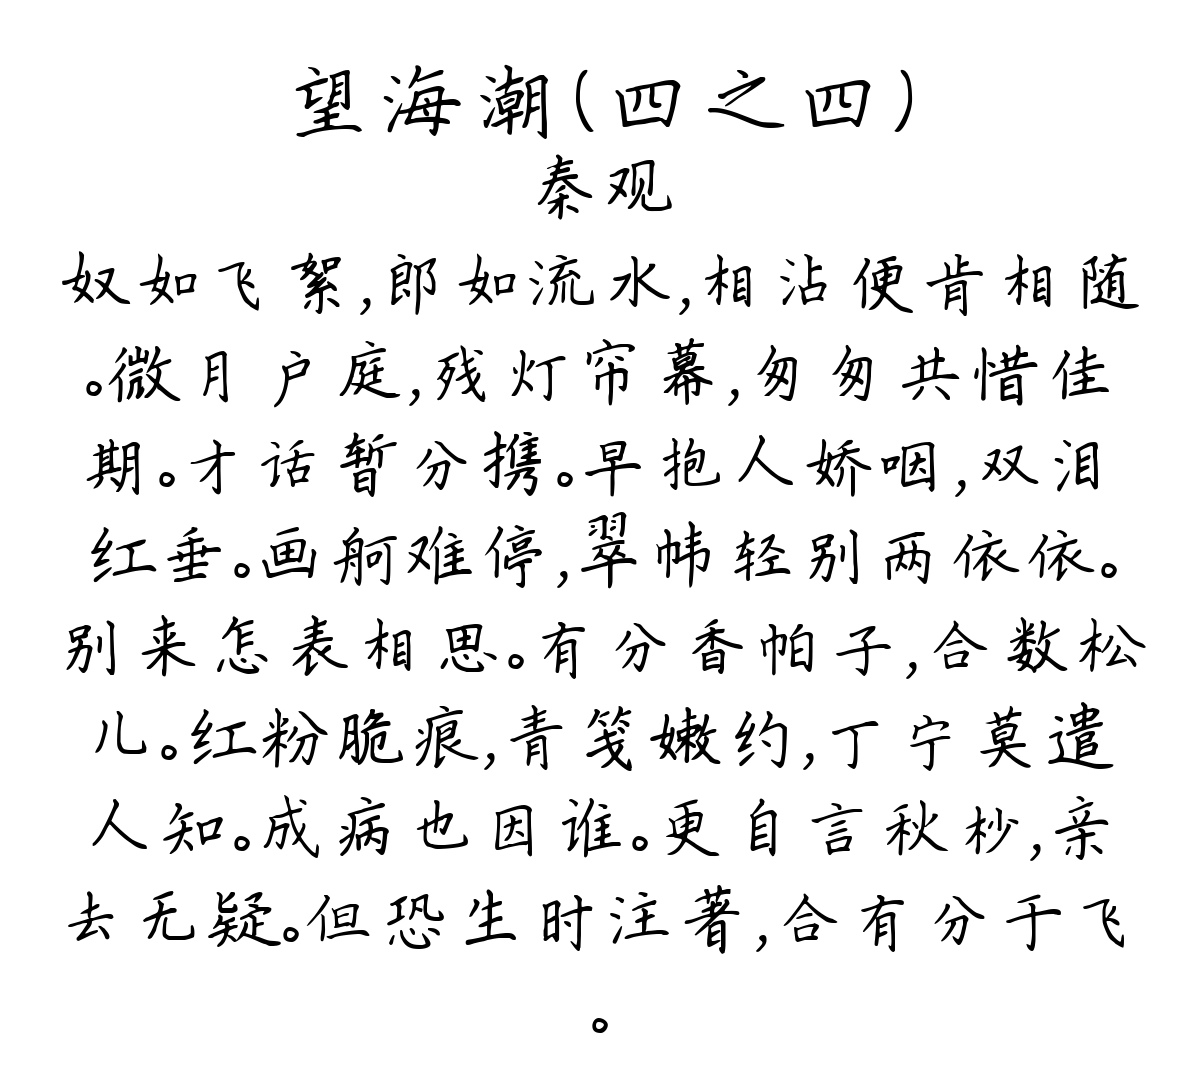 望海潮(四之四)
秦观
奴如飞絮,郎如流水,相沾便肯相随
。微月户庭,残灯帘幕,匆匆共惜佳
期。才话暂分携。早抱人娇咽,双泪
红垂。画舸难停,翠帏轻别两依依。
别来怎表相思。有分香帕子,合数松
儿。红粉脆痕,青笺嫩约,丁宁莫遣
人知。成病也因谁。更自言秋杪,亲
去无疑。但恐生时注著,合有分于飞
。